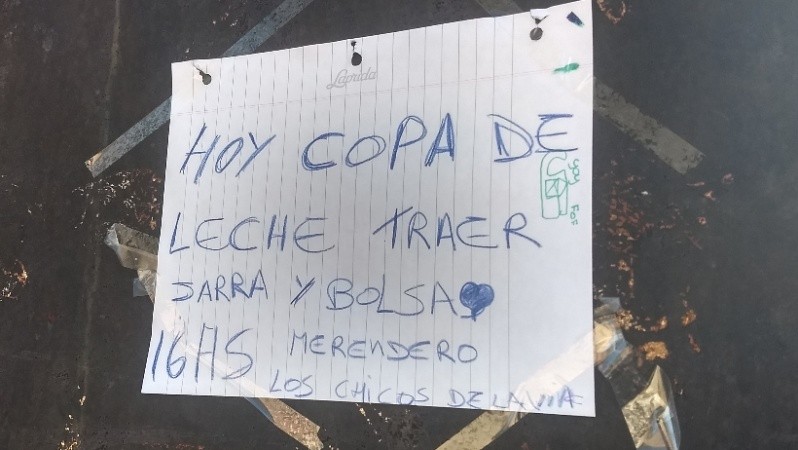 Laprida
HOY COPA DE
LECHE TRAER
JARRA Y BOLSA
16HS MERENDERO
LOS CHICOS DE LA VIA